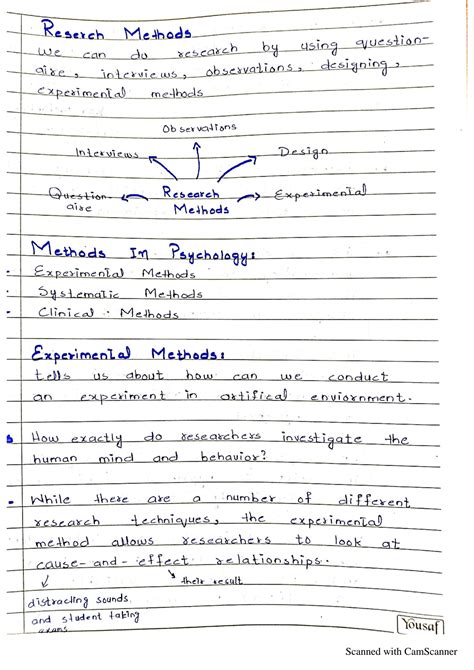 Reserch Methods
We can do research by using question-
aire, interviews, observations, designing,
experimental methods
Observations
Interviews
Design
Question-
aire
Research
Methods
Experimental
Methods In Psychology:
- Experimental Methods
- Systematic Methods
- Clinical Methods
Experimental Methods:
tells us about how can we conduct
an experiment in artifical enviornment.
How exactly do researchers investigate the
human mind and behavior?
- While there are a number of different
research techniques, the experimental
method allows researchers to look at
cause-and-effect relationships.
their result
distracting sounds
and student taking
exams
Yousaf
Scanned with CamScanner